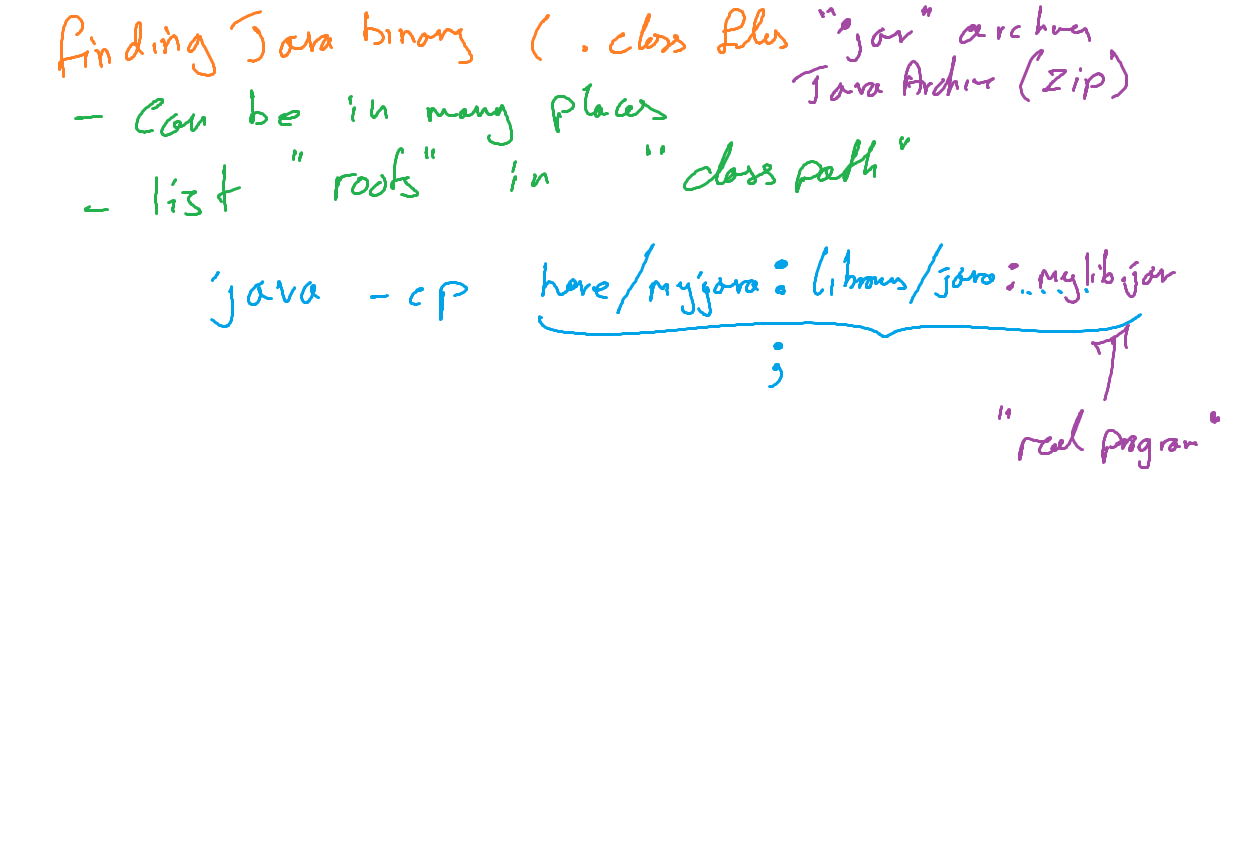 finding Java binary ( .class files "jar" archives
Java Archive (zip)
- Can be in many places
- list "roots" in "classpath"
java -cp here/myjava:library/java:....mylib.jar
;
"real program"